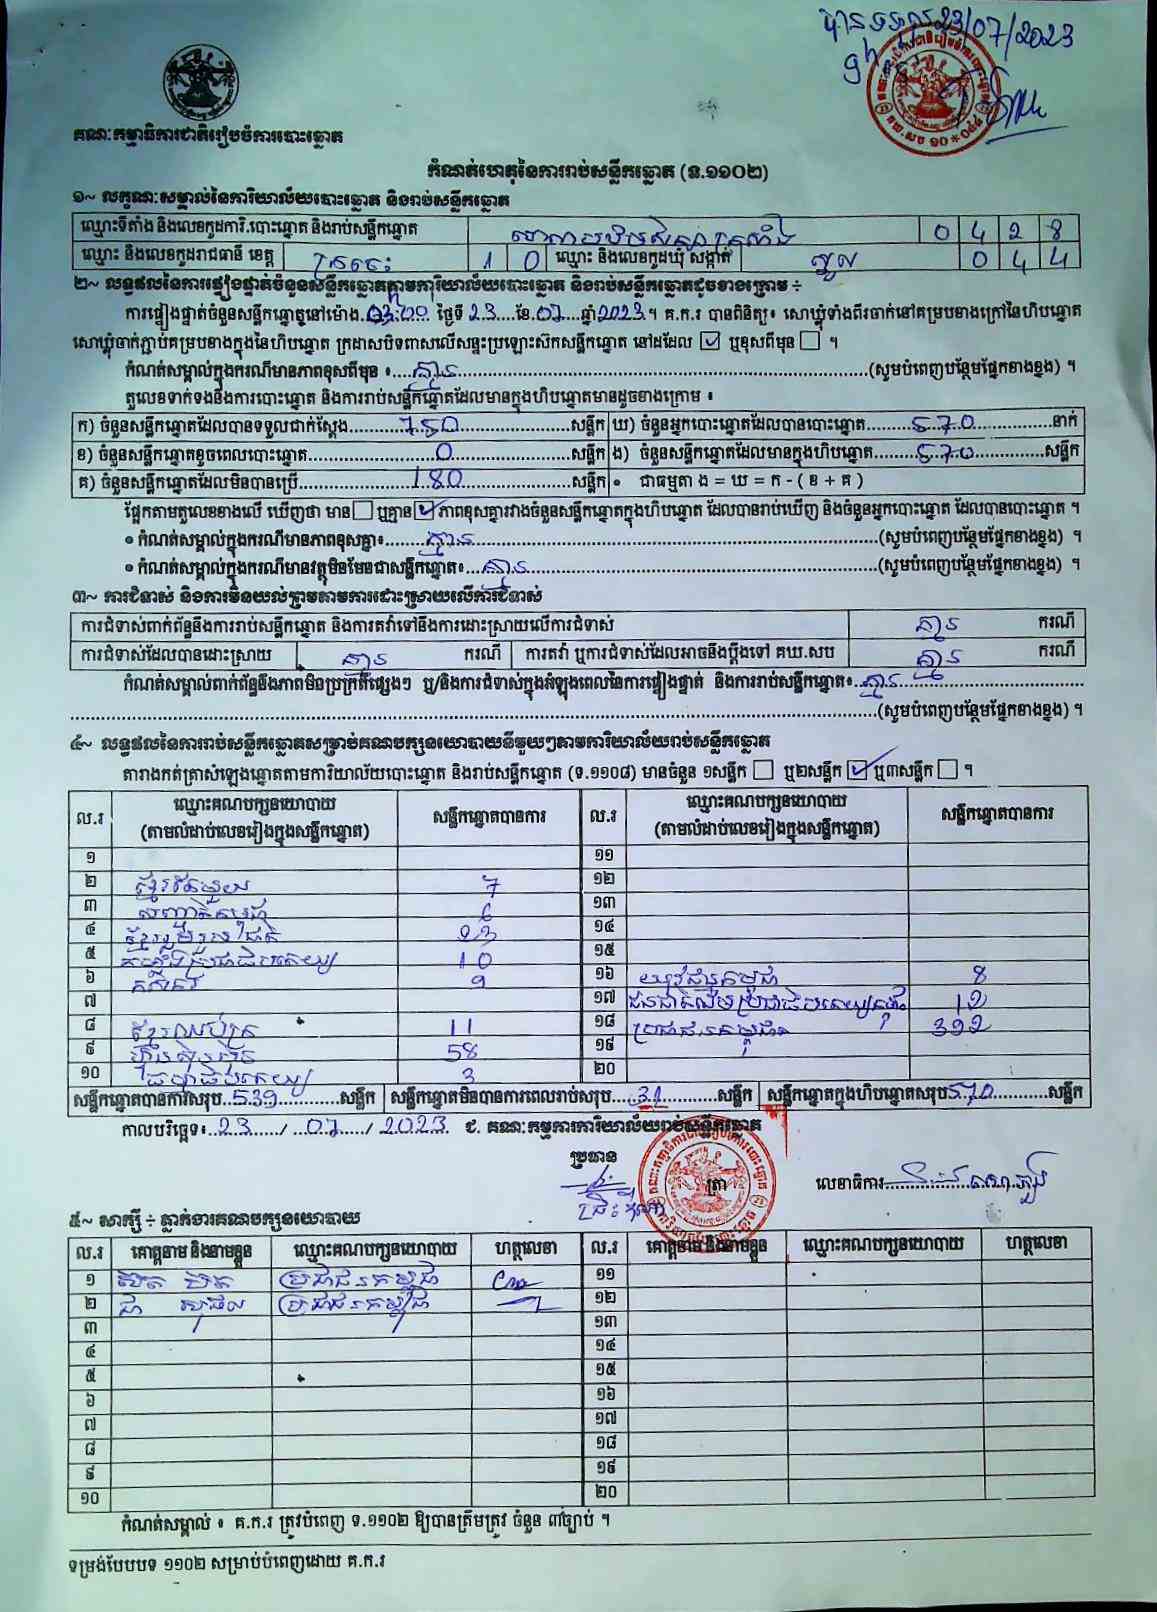 បានទទួល 23/07/2023
9h
គណៈកម្មាធិការជាតិរៀបចំការបោះឆ្នោត
កំណត់ហេតុនៃការរាប់សន្លឹកឆ្នោត (ទ.១១០២)
១~ លក្ខណៈសម្គាល់នៃការិយាល័យបោះឆ្នោត និងរាប់សន្លឹកឆ្នោត
ឈ្មោះទីតាំង និងលេខកូដការិ.បោះឆ្នោត និងរាប់សន្លឹកឆ្នោត 0 4 2 8
ឈ្មោះ និងលេខកូដរាជធានី ខេត្ត ក្រចេះ 1 0 ឈ្មោះ និងលេខកូដឃុំ សង្កាត់ ស្នួល 0 4 4
២~ លទ្ធផលនៃការផ្ទៀងផ្ទាត់ចំនួនសន្លឹកឆ្នោតតាមការិយាល័យបោះឆ្នោត និងរាប់សន្លឹកឆ្នោតដូចខាងក្រោម ៖
ការផ្ទៀងផ្ទាត់ចំនួនសន្លឹកឆ្នោតនៅម៉ោង 03:00 ថ្ងៃទី 23 ខែ 07 ឆ្នាំ 2023 ។ គ.ក.រ បានពិនិត្យ៖ សោឃ្លុំទាំងពីរចាក់នៅគម្របខាងក្រៅនៃហិបឆ្នោត
សោឃ្លុំចាក់ភ្ជាប់គម្របខាងក្នុងនៃហិបឆ្នោត ក្រដាសបិទពាសលើសន្ទះប្រឡោះស៊ីកសន្លឹកឆ្នោត នៅដដែល ☑ ឬខុសពីមុន ☐ ។
កំណត់សម្គាល់ក្នុងករណីមានភាពខុសពីមុន ៖ គ្មាន (សូមបំពេញបន្ថែមផ្នែកខាងខ្នង) ។
តួលេខទាក់ទងនឹងការបោះឆ្នោត និងការរាប់សន្លឹកឆ្នោតដែលមានក្នុងហិបឆ្នោតមានដូចខាងក្រោម ៖
ក) ចំនួនសន្លឹកឆ្នោតដែលបានទទួលជាក់ស្តែង 750 សន្លឹក ឃ) ចំនួនអ្នកបោះឆ្នោតដែលបានបោះឆ្នោត 570 នាក់
ខ) ចំនួនសន្លឹកឆ្នោតខូចពេលបោះឆ្នោត 0 សន្លឹក ង) ចំនួនសន្លឹកឆ្នោតដែលមានក្នុងហិបឆ្នោត 570 សន្លឹក
គ) ចំនួនសន្លឹកឆ្នោតដែលមិនបានប្រើ 180 សន្លឹក • ជាធម្មតា ង = ឃ = ក - ( ខ + គ )
ផ្អែកតាមតួលេខខាងលើ ឃើញថា មាន ☐ ឬគ្មាន ☑ ភាពខុសគ្នារវាងចំនួនសន្លឹកឆ្នោតក្នុងហិបឆ្នោត ដែលបានរាប់ឃើញ និងចំនួនអ្នកបោះឆ្នោត ដែលបានបោះឆ្នោត ។
• កំណត់សម្គាល់ក្នុងករណីមានភាពខុសគ្នា៖ គ្មាន (សូមបំពេញបន្ថែមផ្នែកខាងខ្នង) ។
• កំណត់សម្គាល់ក្នុងករណីមានវត្ថុមិនមែនជាសន្លឹកឆ្នោត៖ គ្មាន (សូមបំពេញបន្ថែមផ្នែកខាងខ្នង) ។
៣~ ការជំទាស់ និងការមិនយល់ព្រមតាមការដោះស្រាយលើការជំទាស់
ការជំទាស់ពាក់ព័ន្ធនឹងការរាប់សន្លឹកឆ្នោត និងការតវ៉ាទៅនឹងការដោះស្រាយលើការជំទាស់ គ្មាន ករណី
ការជំទាស់ដែលបានដោះស្រាយ គ្មាន ករណី ការតវ៉ា ឬការជំទាស់ដែលអាចនឹងប្តឹងទៅ គឃ.សប គ្មាន ករណី
កំណត់សម្គាល់ពាក់ព័ន្ធនឹងភាពមិនប្រក្រតីផ្សេងៗ ឬ/និងការជំទាស់ក្នុងអំឡុងពេលនៃការផ្ទៀងផ្ទាត់ និងការរាប់សន្លឹកឆ្នោត៖ គ្មាន
(សូមបំពេញបន្ថែមផ្នែកខាងខ្នង) ។
៤~ លទ្ធផលនៃការរាប់សន្លឹកឆ្នោតសម្រាប់គណបក្សនយោបាយនីមួយៗតាមការិយាល័យរាប់សន្លឹកឆ្នោត
តារាងកត់ត្រាសំឡេងឆ្នោតតាមការិយាល័យបោះឆ្នោត និងរាប់សន្លឹកឆ្នោត (ទ.១១០៨) មានចំនួន ១សន្លឹក ☐ ឬ២សន្លឹក ☑ ឬ៣សន្លឹក ☐ ។
ល.រ ឈ្មោះគណបក្សនយោបាយ (តាមលំដាប់លេខរៀងក្នុងសន្លឹកឆ្នោត) សន្លឹកឆ្នោតបានការ ល.រ ឈ្មោះគណបក្សនយោបាយ (តាមលំដាប់លេខរៀងក្នុងសន្លឹកឆ្នោត) សន្លឹកឆ្នោតបានការ
១ ១១
២ ខ្មែរតែមួយ 7 ១២
៣ សញ្ជាតិកម្ពុជា 6 ១៣
៤ ខ្មែររួបរួមជាតិ 23 ១៤
៥ កម្លាំងប្រជាធិបតេយ្យ 10 ១៥
៦ កសិករ 9 ១៦ យុវជនកម្ពុជា 8
៧ ១៧ ជនជាតិដើមប្រជាធិបតេយ្យកម្ពុជា 12
៨ ខ្មែរអភិរក្ស 11 ១៨ ប្រជាជនកម្ពុជា 392
៩ ហ៊្វុនស៊ិនប៉ិច 58 ១៩
១០ ប្រជាធិបតេយ្យ 3 ២០
សន្លឹកឆ្នោតបានការសរុប 539 សន្លឹក សន្លឹកឆ្នោតមិនបានការពេលរាប់សរុប 31 សន្លឹក សន្លឹកឆ្នោតក្នុងហិបឆ្នោតសរុប 570 សន្លឹក
កាលបរិច្ឆេទ៖ 23 / 07 / 2023 ជ. គណៈកម្មការការិយាល័យរាប់សន្លឹកឆ្នោត
ប្រធាន
ត្រា
លេខាធិការ
៥~ សាក្សី ៖ ភ្នាក់ងារគណបក្សនយោបាយ
ល.រ គោត្តនាម និងនាមខ្លួន ឈ្មោះគណបក្សនយោបាយ ហត្ថលេខា ល.រ គោត្តនាម និងនាមខ្លួន ឈ្មោះគណបក្សនយោបាយ ហត្ថលេខា
១ ប្រជាជនកម្ពុជា ១១
២ ជា សុផល ប្រជាជនកម្ពុជា ១២
៣ ១៣
៤ ១៤
៥ ១៥
៦ ១៦
៧ ១៧
៨ ១៨
៩ ១៩
១០ ២០
កំណត់សម្គាល់ ៖ គ.ក.រ ត្រូវបំពេញ ទ.១១០២ ឱ្យបានត្រឹមត្រូវ ចំនួន ៣ច្បាប់ ។
ទម្រង់បែបបទ ១១០២ សម្រាប់បំពេញដោយ គ.ក.រ